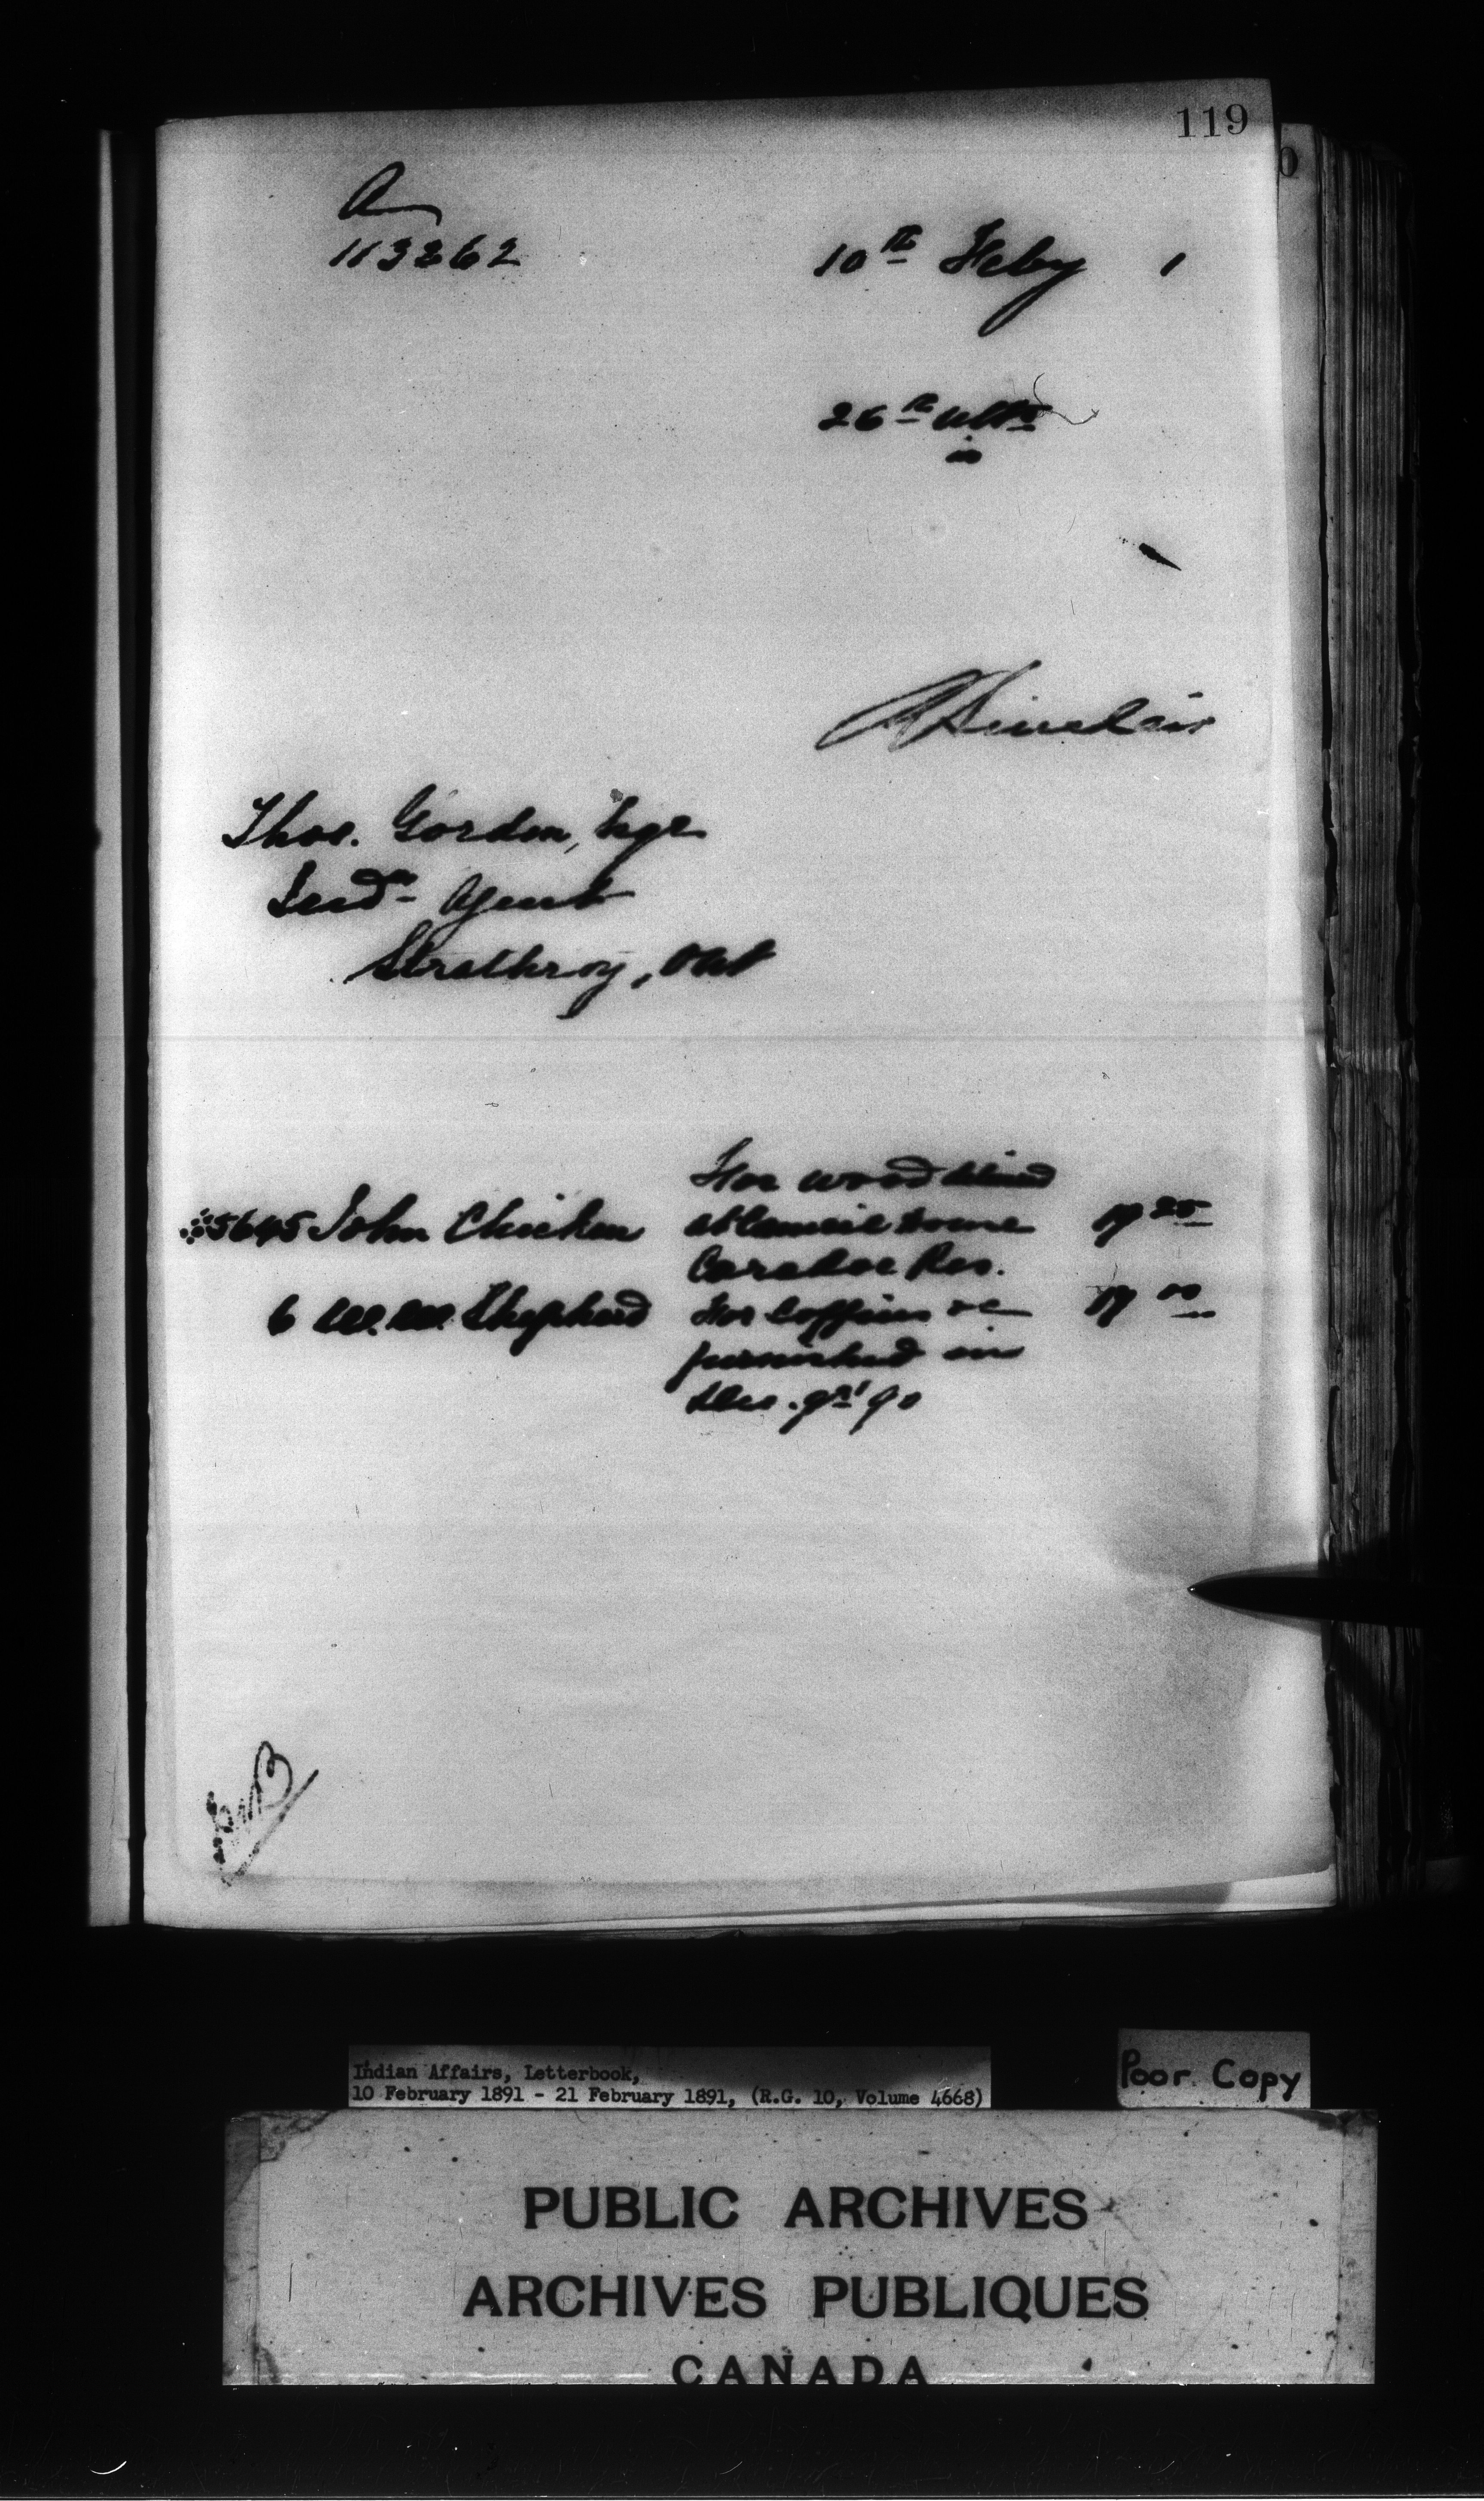 119
A
113262
10th Feby 1
26th ulto
is
A Sinclair
Thos. Gordon, Esqr
Indn Agent
Strathroy, Ont
For wood
5645 John Chicken at Council House 19 25
Caradoc Res.
6 W.W. Shepherd For Coffins &c 19 00
furnished in
Dec. qr '90
Indian Affairs, Letterbook,
10 February 1891 - 21 February 1891, (R.G. 10, Volume 4668)
Poor Copy
PUBLIC ARCHIVES
ARCHIVES PUBLIQUES
CANADA